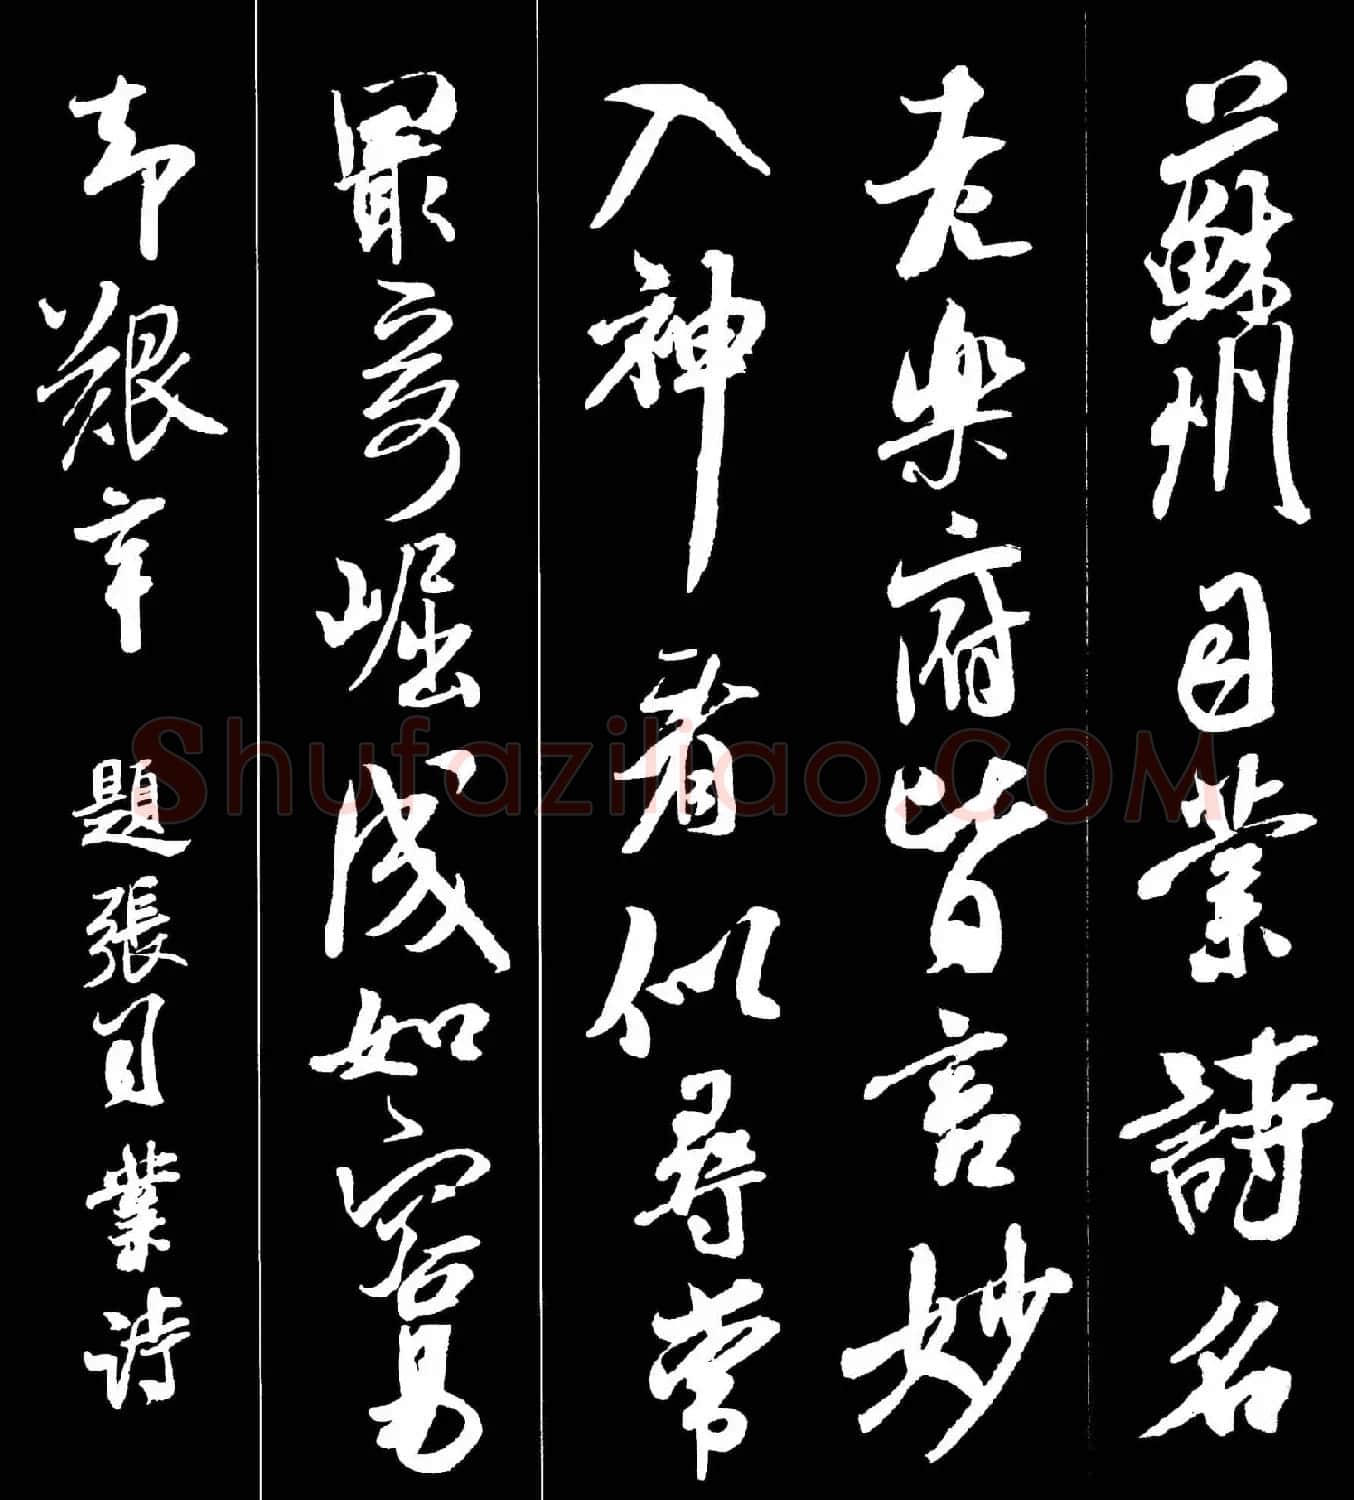 蘇州司業詩名
老樂府皆言妙
入神看似尋常
最奇崛成如容易
却艱辛 題張司業詩
Shufaziliao.COM